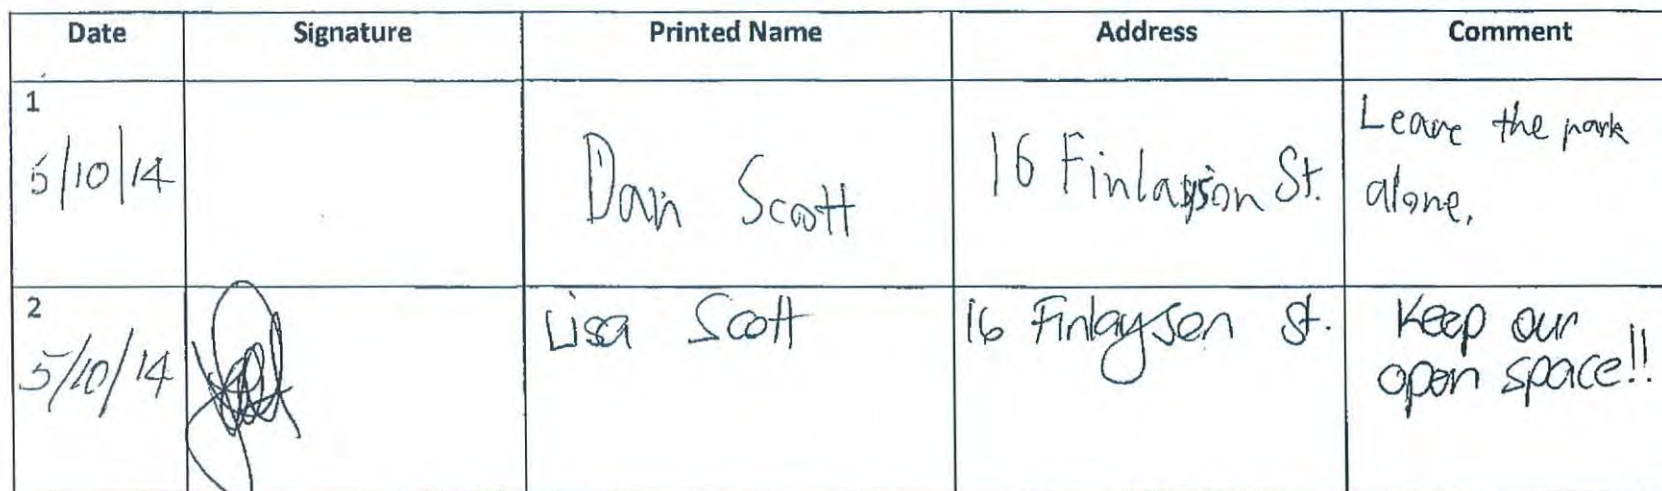 Date Signature Printed Name Address Comment
1
5/10/14 Dan Scott 16 Finlayson St. Leave the park
alone.
2
5/10/14 Lisa Scott 16 Finlayson St. Keep our
open space!!